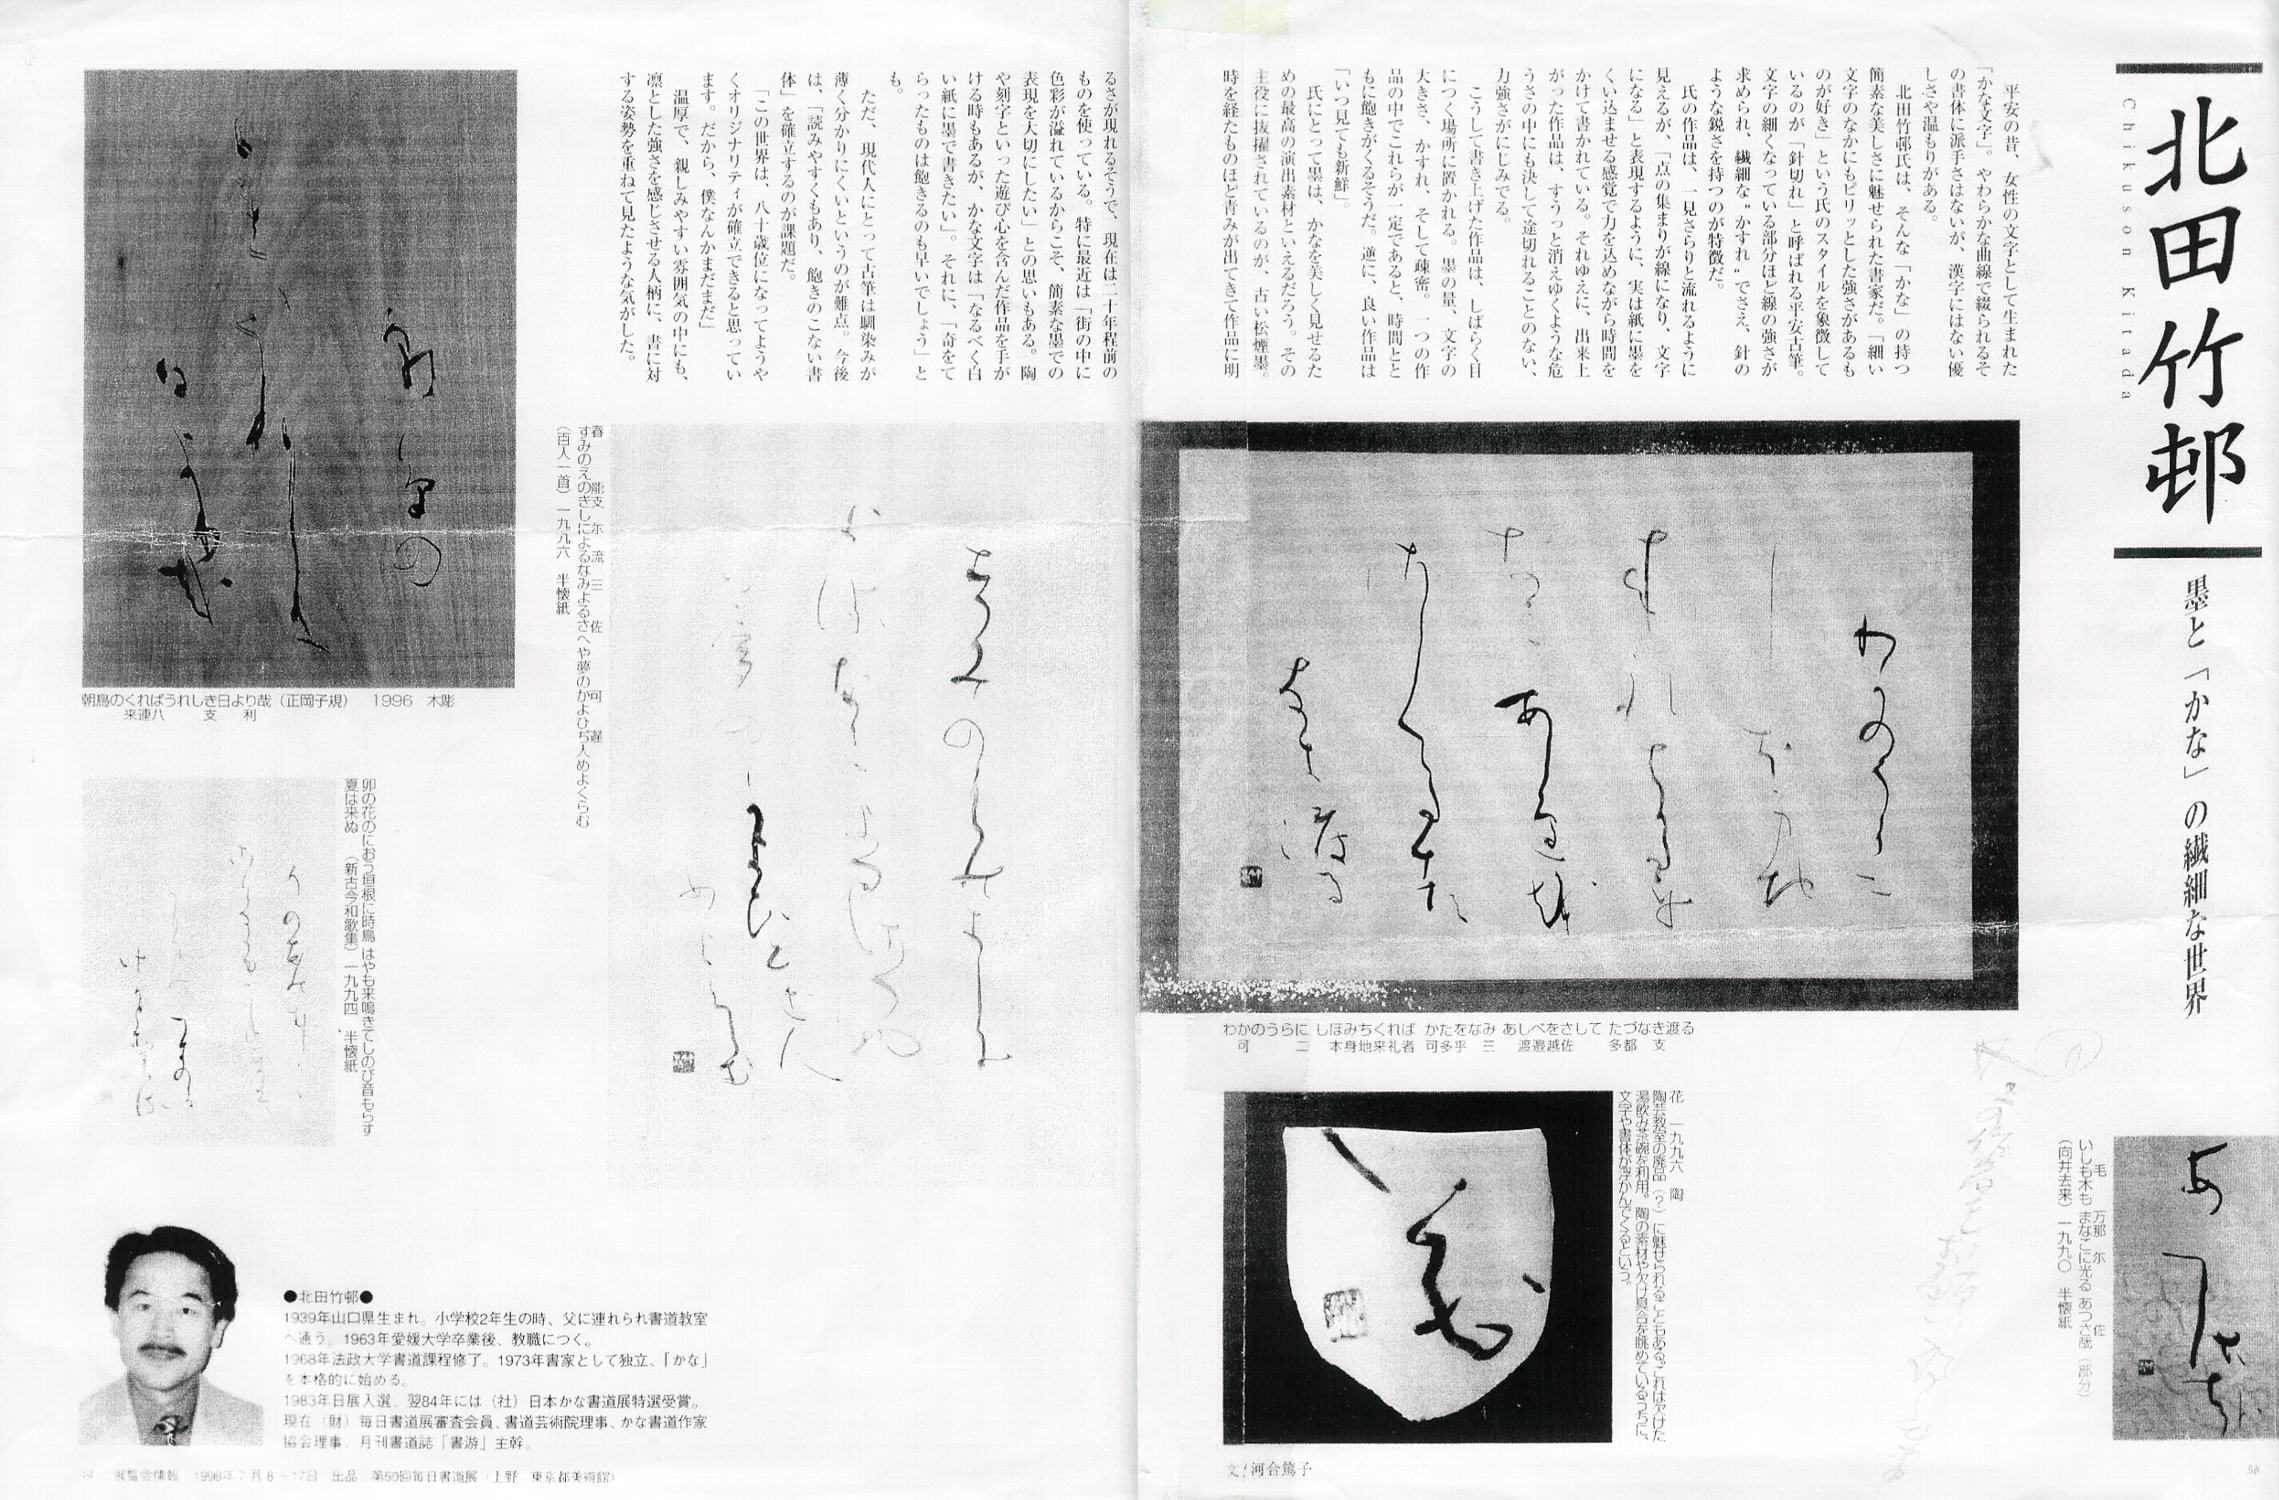 北田竹邨
Chikuson Kitada
墨と「かな」の繊細な世界
平安の昔、女性の文字として生まれた
「かな文字」。やわらかな曲線で綴られるそ
の書体に派手さはないが、漢字にはない優
しさや温もりがある。
北田竹邨氏は、そんな「かな」の持つ
簡素な美しさに魅せられた書家だ。「細い
文字のなかにもピリッとした強さがあるも
のが好き」という氏のスタイルを象徴して
いるのが「針切れ」と呼ばれる平安古筆。
文字の細くなっている部分ほど線の強さが
求められ、繊細な〝かすれ〟でさえ、針の
ような鋭さを持つのが特徴だ。
氏の作品は、一見さらりと流れるように
見えるが、「点の集まりが線になり、文字
になる」と表現するように、実は紙に墨を
くい込ませる感覚で力を込めながら時間を
かけて書かれている。それゆえに、出来上
がった作品は、すうっと消えゆくような危
うさの中にも決して途切れることのない、
力強さがにじみでる。
こうして書き上げた作品は、しばらく目
につく場所に置かれる。墨の量、文字の
大きさ、かすれ、そして疎密。一つの作
品の中でこれらが一定であると、時間とと
もに飽きがくるそうだ。逆に、良い作品は
「いつ見ても新鮮」。
氏にとって墨は、かなを美しく見せるた
めの最高の演出素材といえるだろう。その
主役に抜擢されているのが、古い松煙墨。
時を経たものほど青みが出てきて作品に明
るさが現れるそうで、現在は二十年程前の
ものを使っている。特に最近は「街の中に
色彩が溢れているからこそ、簡素な墨での
表現を大切にしたい」との思いもある。陶
や刻字といった遊び心を含んだ作品を手が
ける時もあるが、かな文字は「なるべく白
い紙に墨で書きたい」。それに、「奇をて
らったものは飽きるのも早いでしょう」と
も。
ただ、現代人にとって古筆は馴染みが
薄く分かりにくいというのが難点。今後
は、「読みやすくもあり、飽きのこない書
体」を確立するのが課題だ。
「この世界は、八十歳位になってようや
くオリジナリティが確立できると思ってい
ます。だから、僕なんかまだまだ」
温厚で、親しみやすい雰囲気の中にも、
凛とした強さを感じさせる人柄に、書に対
する姿勢を重ねて見たような気がした。
わかのうらに しほみちくれば かたをなみ あしべをさして たづなき渡る
可 二 本身地来礼者 可多乎 三 渡邉越佐 多都 支
花 一九九六 陶
陶芸教室の廃品(?)に魅せられることもある。これは欠けた
湯飲み茶碗を利用。陶の素材や欠け具合を眺めているうちに、
文字や書体が浮かんでくるという。
毛 万那 尓 佐
いしも木も まなこに光る あつさ哉(部分)
(向井去来)一九九〇 半懐紙
文/河合篤子
春 能支 尓 流 三 佐 可 遅
すみのえのきしによるなみよるさへや夢のかよひぢ人めよくらむ
(百人一首)一九九六 半懐紙
朝鳥のくればうれしき日より哉(正岡子規) 1996 木彫
来連八 支 利
卯の花のにおう垣根に時鳥 はやも来鳴きてしのび音もらす
夏は来ぬ (新古今和歌集)一九九四 半懐紙
●北田竹邨●
1939年山口県生まれ。小学校2年生の時、父に連れられ書道教室
へ通う。1963年愛媛大学卒業後、教職につく。
1968年法政大学書道課程修了。1973年書家として独立、「かな」
を本格的に始める。
1983年日展入選、翌84年には(社)日本かな書道展特選受賞。
現在(財)毎日書道展審査会員、書道芸術院理事、かな書道作家
協会理事、月刊書道誌「書游」主幹。
展覧会情報 1998年7月8~17日 出品 第50回毎日書道展(上野 東京都美術館)